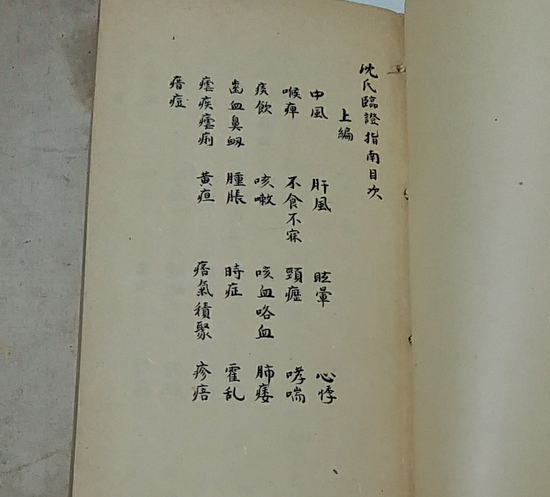 沈氏臨證指南目次
上編
中風 肝風 眩暈 心悸
喉痺 不食不寐 頸癧 哮喘
痰飲 咳嗽 咳血咯血 肺痿
齒血鼻衄 腫脹 時症 霍乱
瘧疾瘧痢 黄疸 痞氣積聚 疹痦
瘄痘